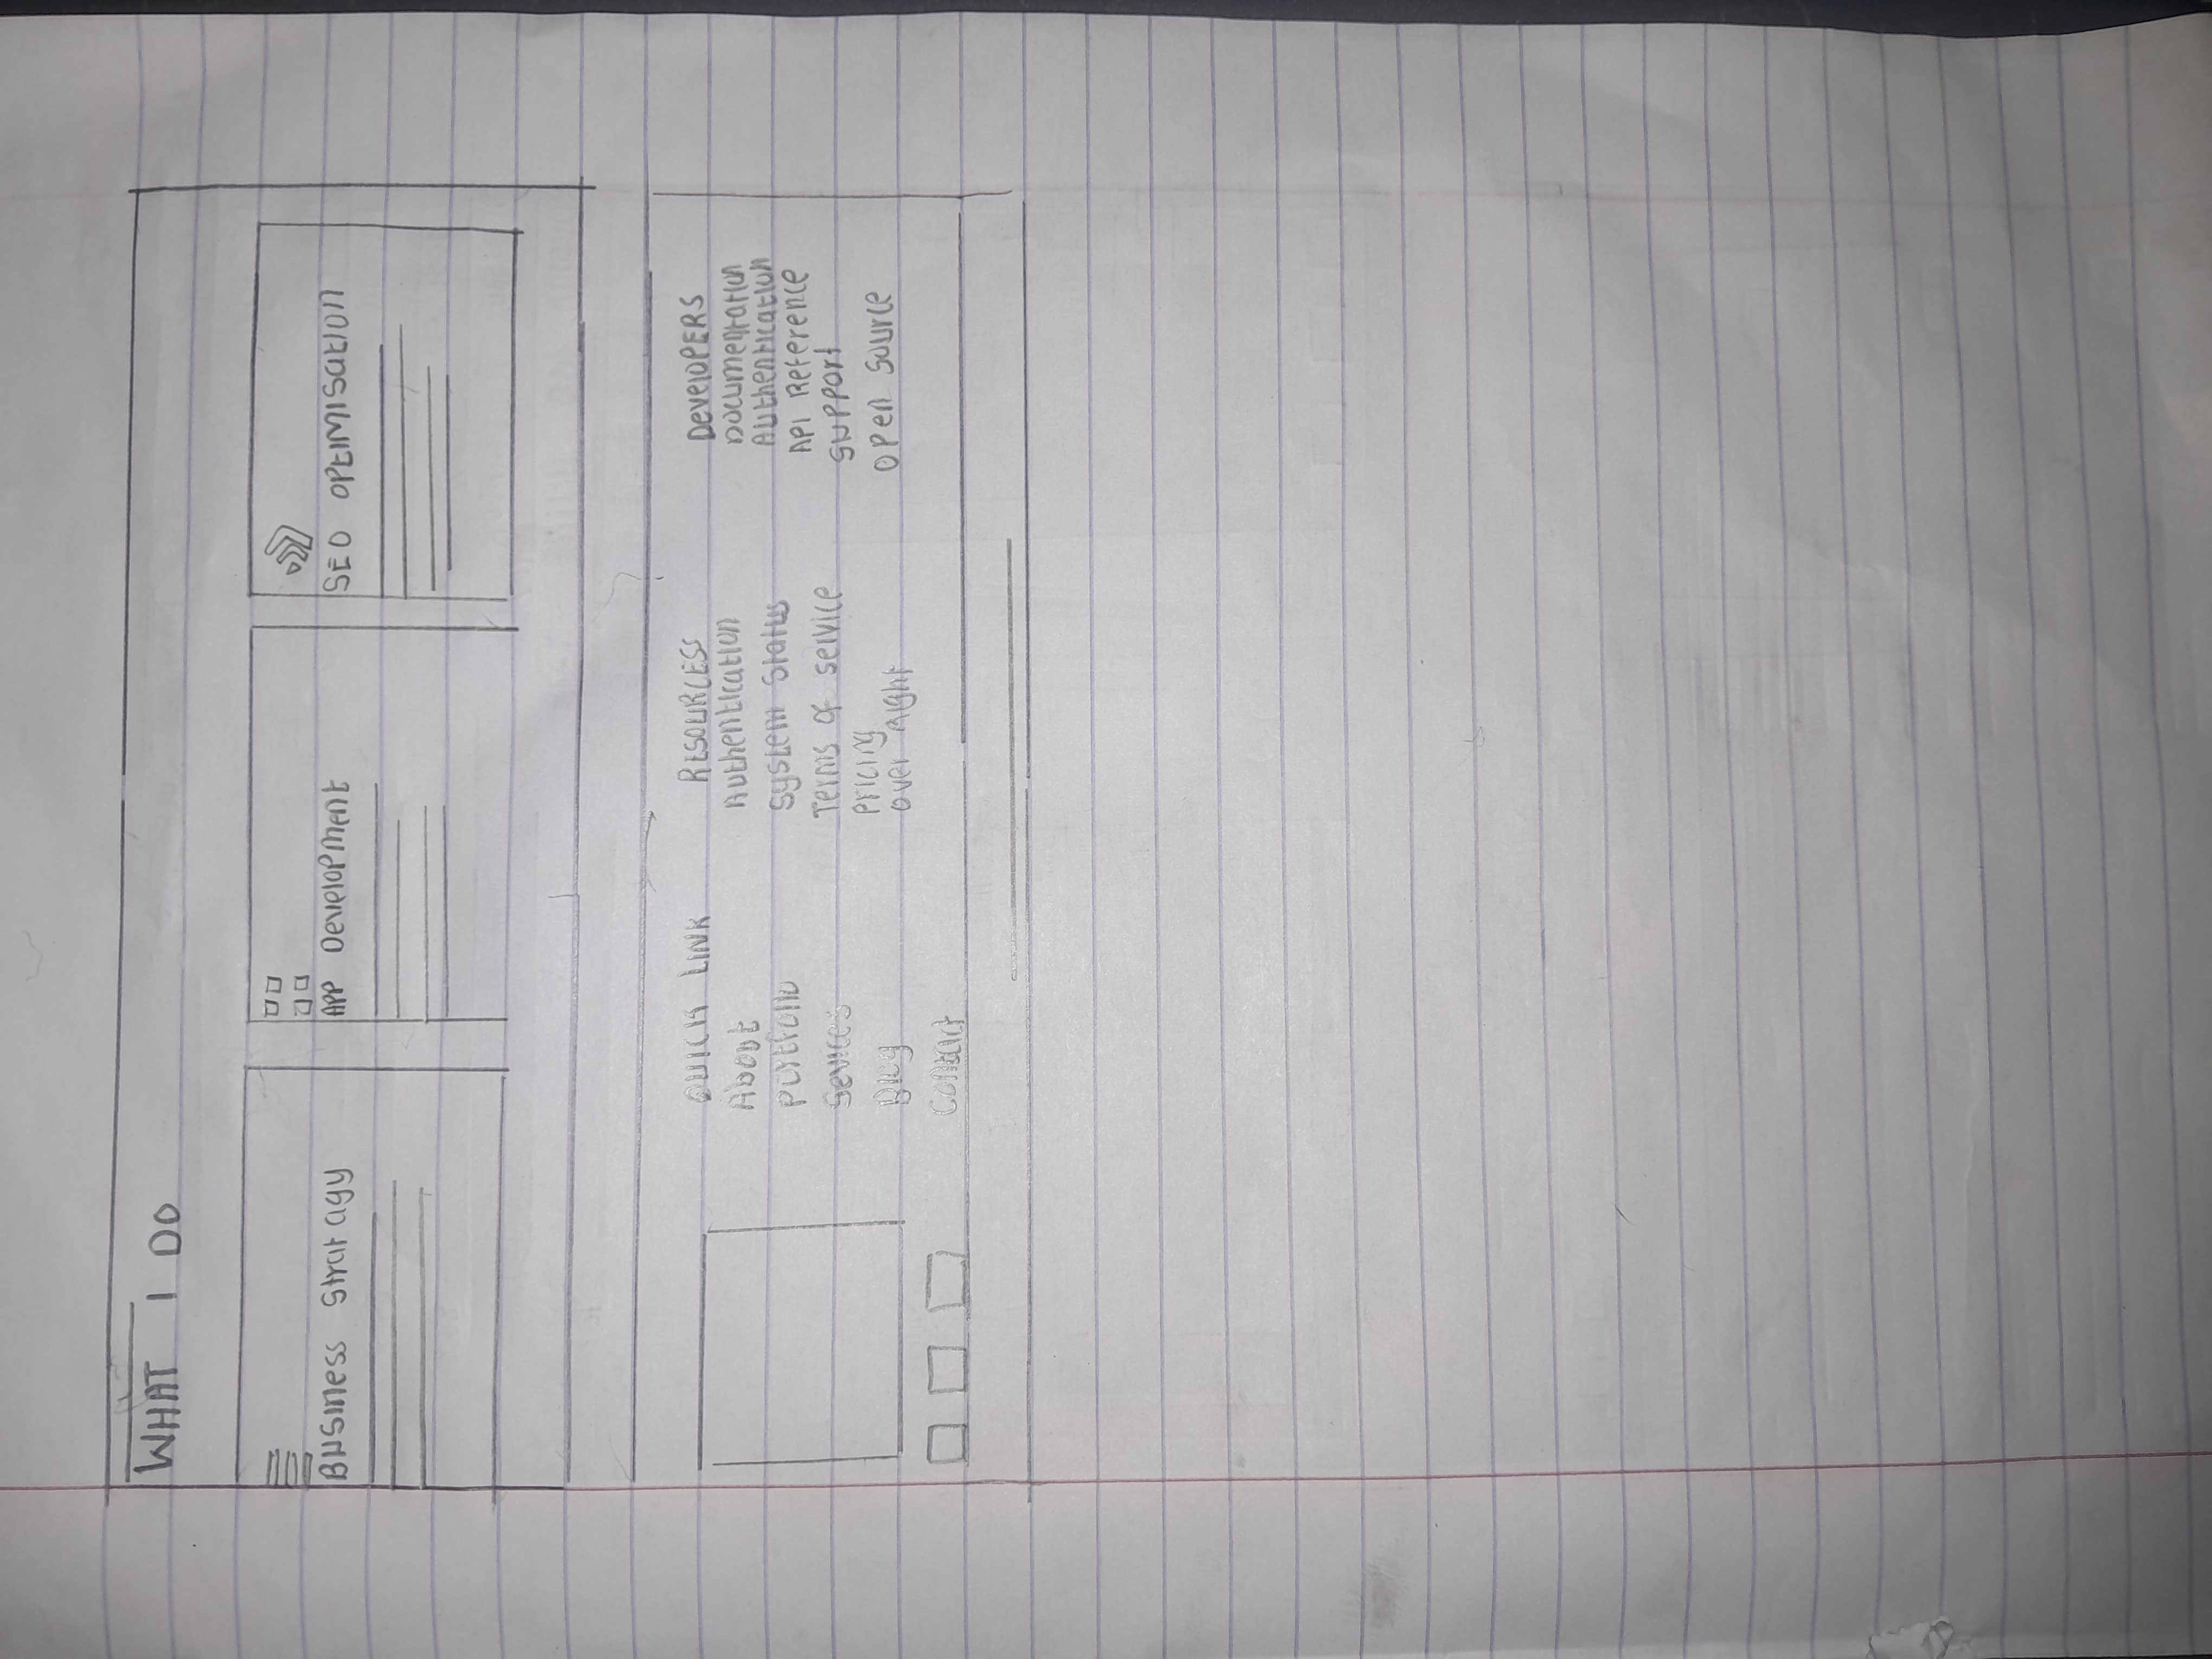 WHAT I DO
Business Stratagy
APP Development
SEO OPTIMISATION
QUICK LINK
About
Portfolio
Sevices
Blog
Contact
RESOURCESS
Authentication
System Status
Terms of service
Pricing
Over Right
DEVELOPERS
Documentation
Authentication
API Reference
Support
Open Source